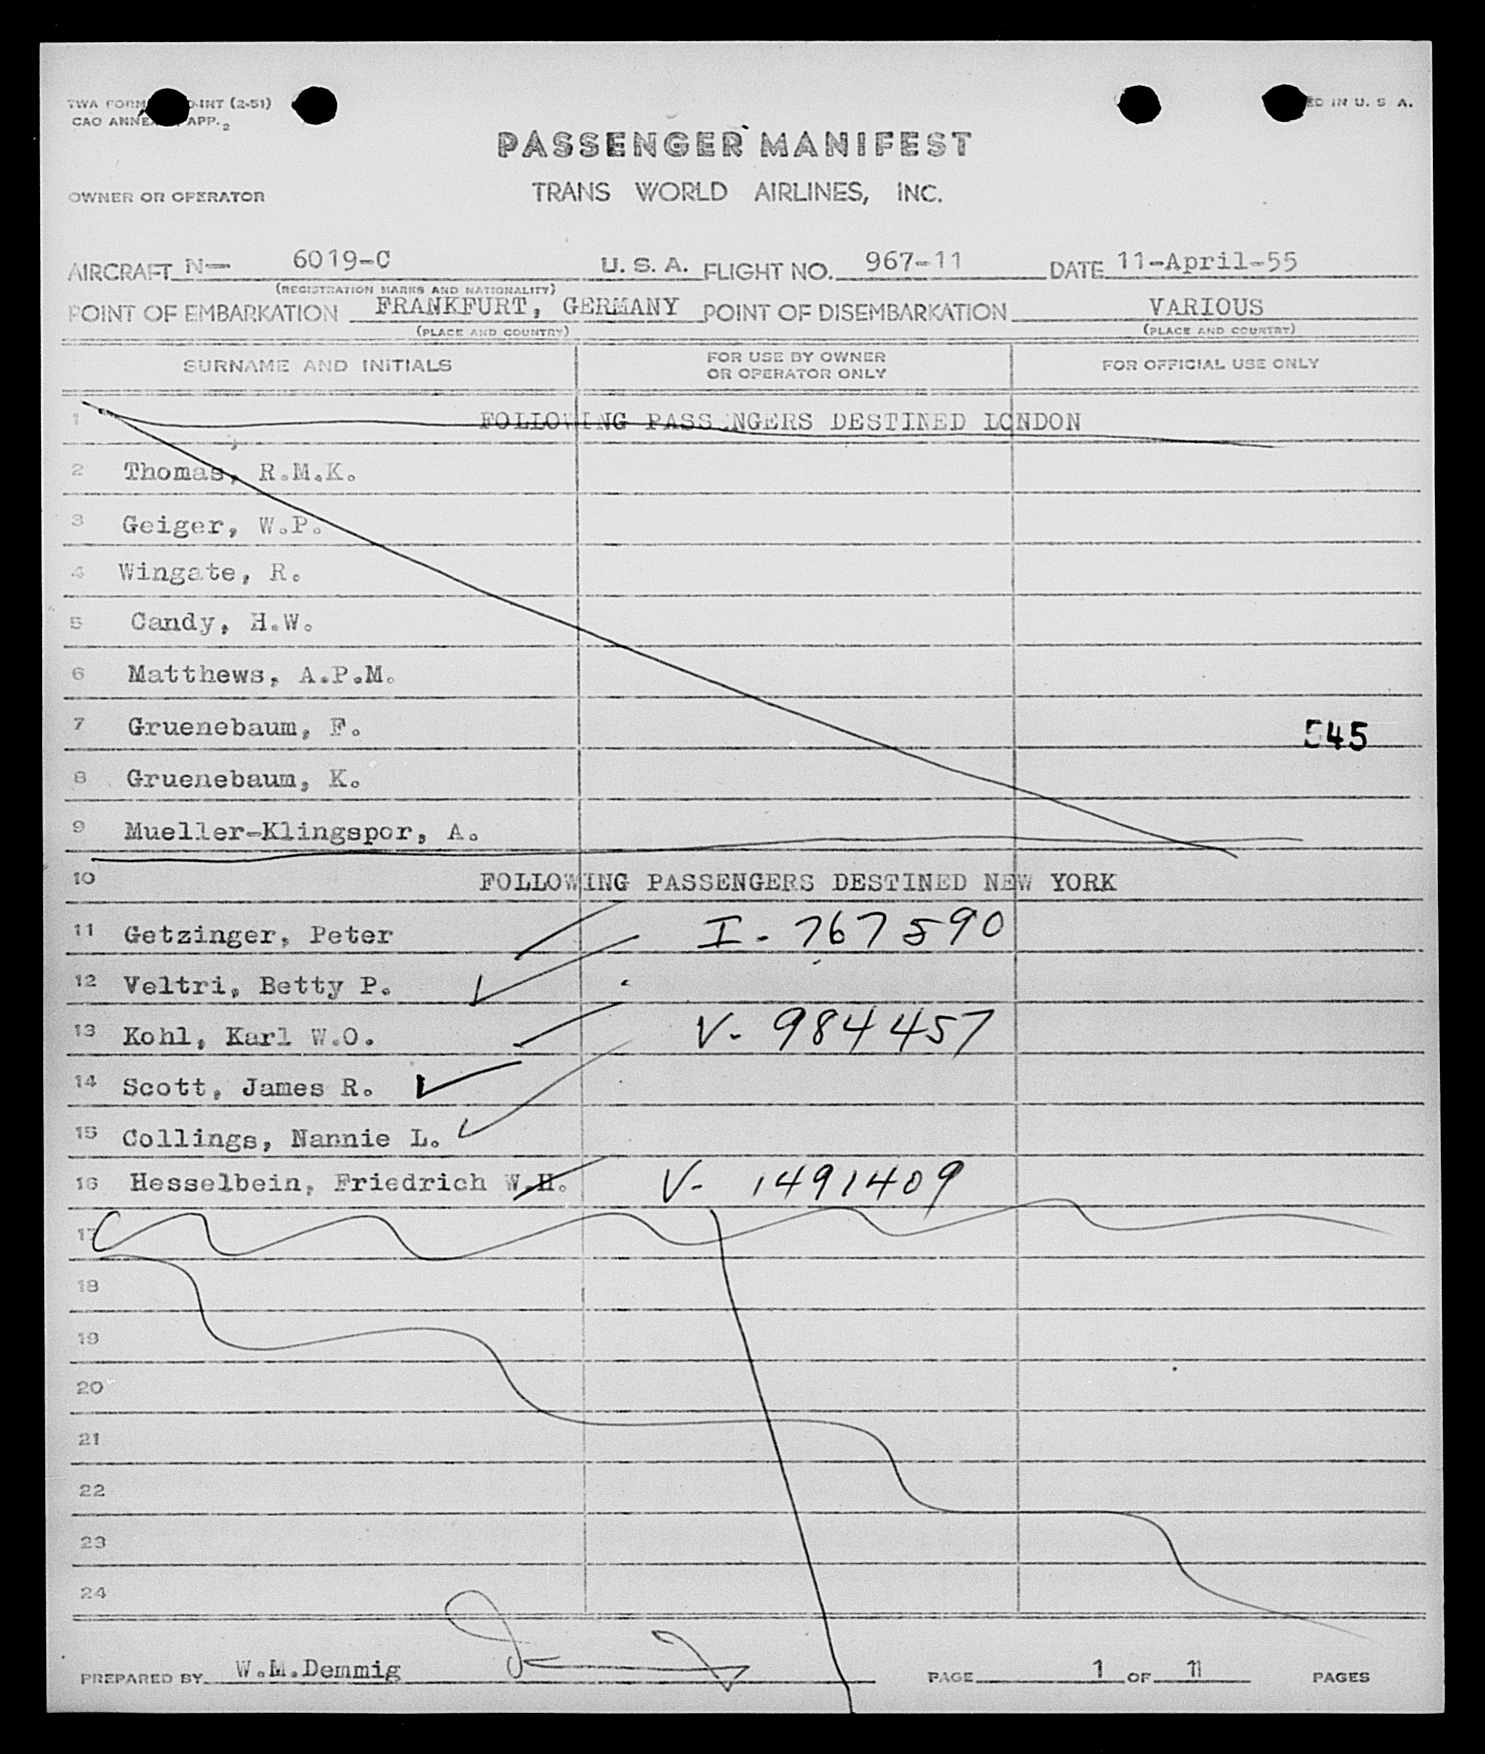 TWA FORM INT (2-51)
CAO ANNEX APP. 2
ED IN U. S. A.
PASSENGER MANIFEST
OWNER OR OPERATOR
TRANS WORLD AIRLINES, INC.
AIRCRAFT N— 6019-C U. S. A. FLIGHT NO. 967-11 DATE 11-April-55
(REGISTRATION MARKS AND NATIONALITY)
POINT OF EMBARKATION FRANKFURT, GERMANY POINT OF DISEMBARKATION VARIOUS
(PLACE AND COUNTRY) (PLACE AND COUNTRY)
SURNAME AND INITIALS FOR USE BY OWNER OR OPERATOR ONLY FOR OFFICIAL USE ONLY
1 FOLLOWING PASSENGERS DESTINED LONDON
2 Thomas, R.M.K.
3 Geiger, W.P.
4 Wingate, R.
5 Candy, H.W.
6 Matthews, A.P.M.
7 Gruenebaum, F. 545
8 Gruenebaum, K.
9 Mueller-Klingspor, A.
10 FOLLOWING PASSENGERS DESTINED NEW YORK
11 Getzinger, Peter I-767590
12 Veltri, Betty P.
13 Kohl, Karl W.O. V-984457
14 Scott, James R.
15 Collings, Nannie L.
16 Hesselbein, Friedrich W.H. V-1491409
17
18
19
20
21
22
23
24
PREPARED BY W.M.Demmig PAGE 1 OF 11 PAGES